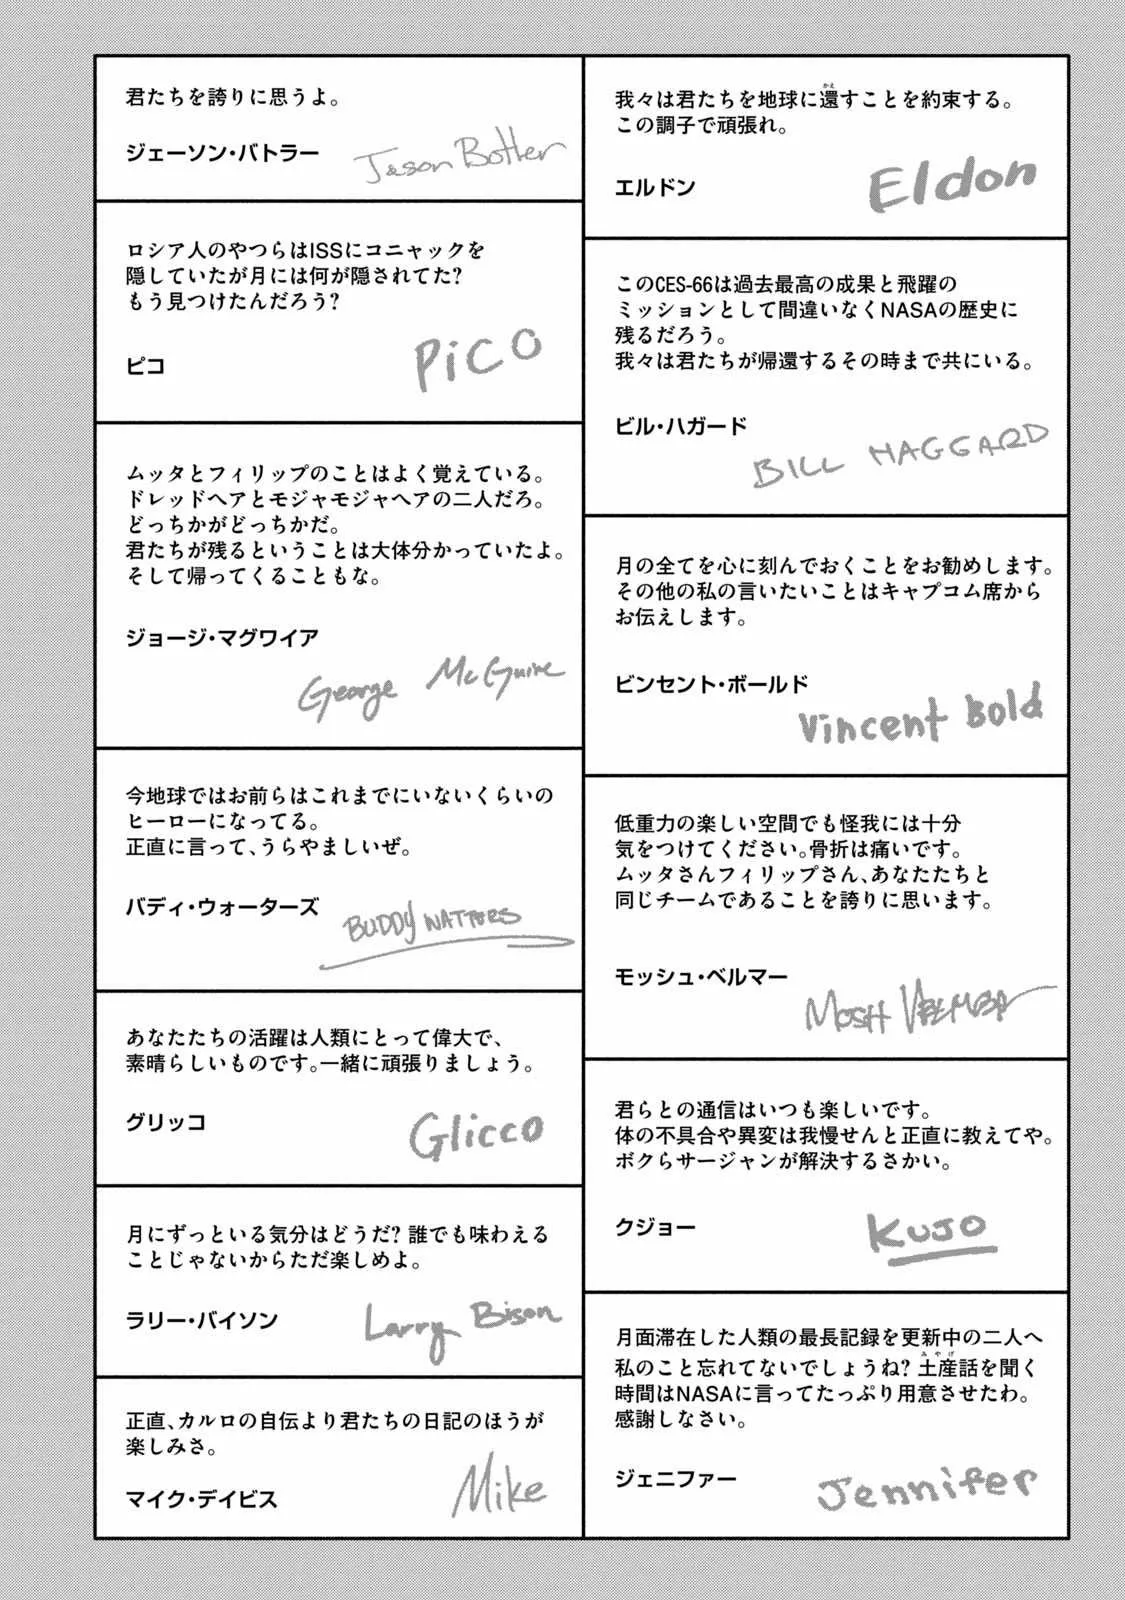 我々は君たちを地球に還すことを約束する。
この調子で頑張れ。
エルドン
Eldon
このCES-66は過去最高の成果と飛躍の
ミッションとして間違いなくNASAの歴史に
残るだろう。
我々は君たちが帰還するその時まで共にいる。
ビル・ハガード
BILL HAGGARD
月の全てを心に刻んでおくことをお勧めします。
その他の私の言いたいことはキャプコム席から
お伝えします。
ビンセント・ボールド
Vincent Bold
低重力の楽しい空間でも怪我には十分
気をつけてください。骨折は痛いです。
ムッタさんフィリップさん、あなたたちと
同じチームであることを誇りに思います。
モッシュ・ベルマー
MOSH
君らとの通信はいつも楽しいです。
体の不具合や異変は我慢せんと正直に教えてや。
ボクらサージャンが解決するさかい。
クジョー
KUJO
月面滞在した人類の最長記録を更新中の二人へ
私のこと忘れてないでしょうね? 土産話を聞く
時間はNASAに言ってたっぷり用意させたわ。
感謝しなさい。
ジェニファー
Jennifer
君たちを誇りに思うよ。
ジェーソン・バトラー
Jason Botler
ロシア人のやつらはISSにコニャックを
隠していたが月には何が隠されてた?
もう見つけたんだろう?
ピコ
PiCO
ムッタとフィリップのことはよく覚えている。
ドレッドヘアとモジャモジャヘアの二人だろ。
どっちかがどっちかだ。
君たちが残るということは大体分かっていたよ。
そして帰ってくることもな。
ジョージ・マグワイア
George McGuire
今地球ではお前らはこれまでにいないくらいの
ヒーローになってる。
正直に言って、うらやましいぜ。
バディ・ウォーターズ
BUDDY WATTERS
あなたたちの活躍は人類にとって偉大で、
素晴らしいものです。一緒に頑張りましょう。
グリッコ
Glicco
月にずっといる気分はどうだ? 誰でも味わえる
ことじゃないからただ楽しめよ。
ラリー・バイソン
Larry Bison
正直、カルロの自伝より君たちの日記のほうが
楽しみさ。
マイク・デイビス
Mike